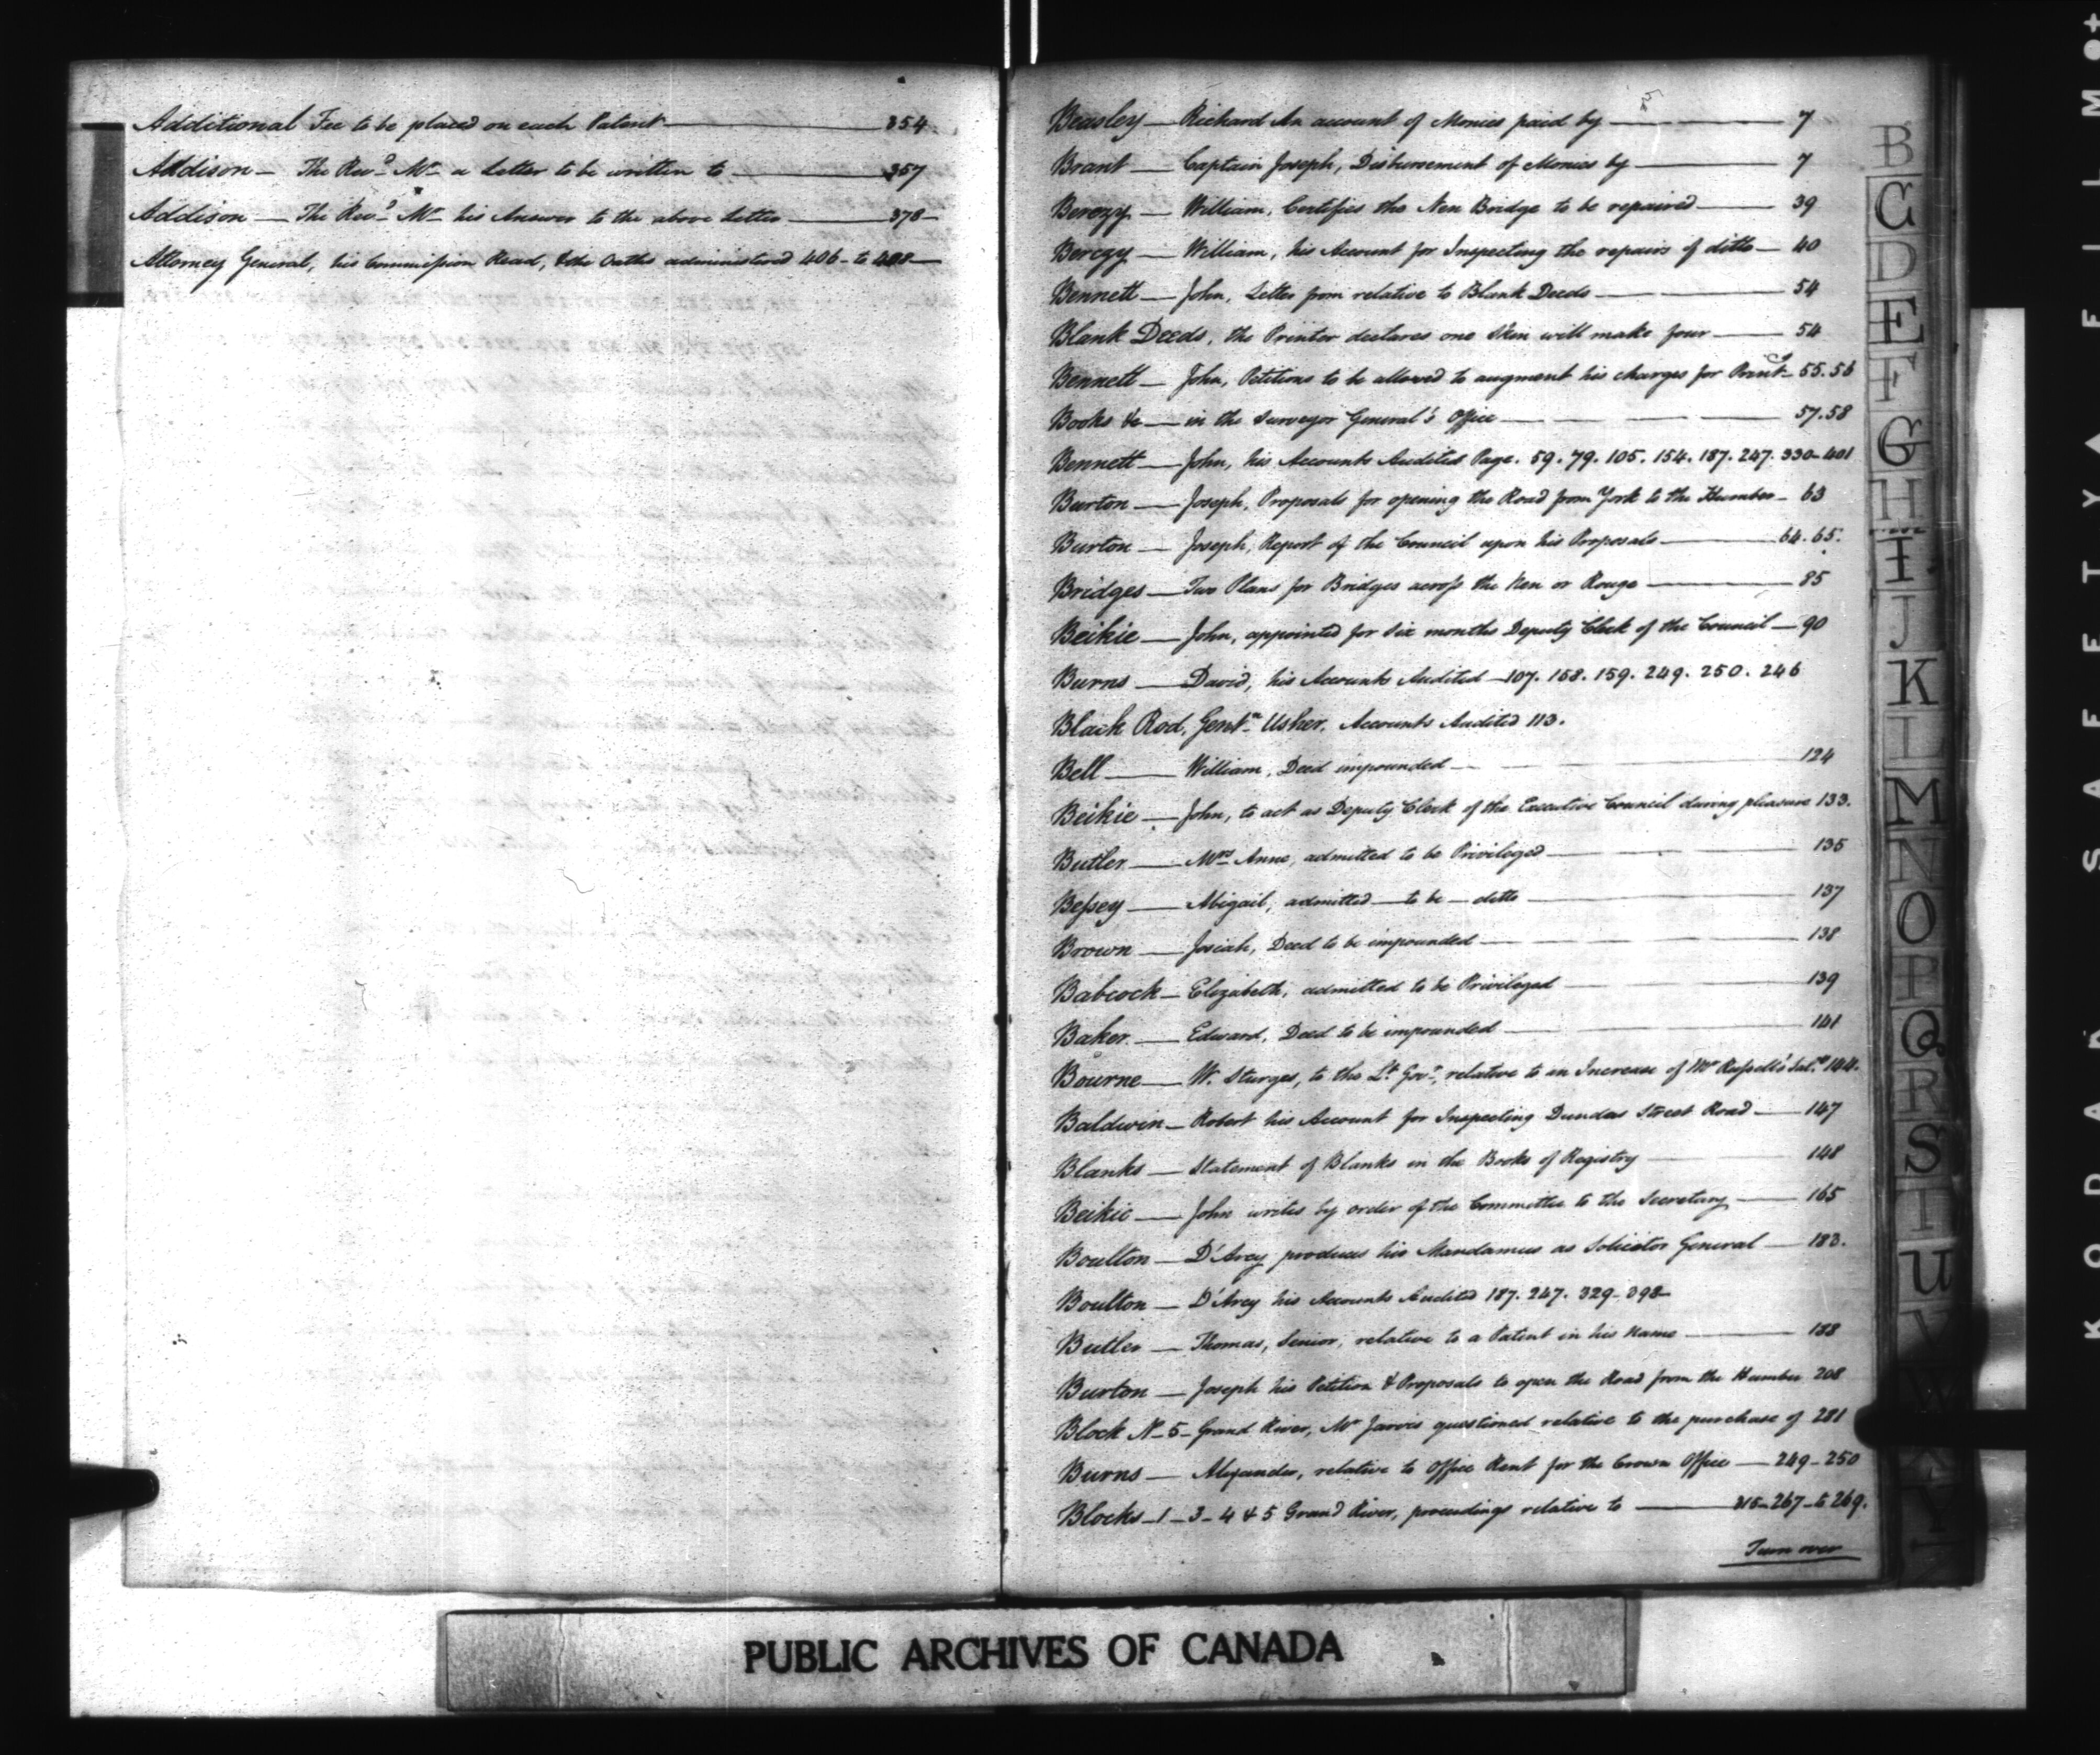 Additional Fee to be placed on each Patent 354
Addison The Revd Mr a Letter to be written to 357
Addison The Revd Mr his Answer to the above Letter 378
Attorney General, his Commission Read, & the Oaths administered 406 to 408
Beasley Richard An account of Monies paid by 7
Brant Captain Joseph, Disbursement of Monies by 7
Berczy William, Certifies the Nen Bridge to be repaired 39
Berczy William, his Account for Inspecting the repairs of ditto 40
Bennett John, Letter from relative to Blank Deeds 54
Blank Deeds, the Printer declares one Skin will make four 54
Bennett John, Petitions to be allowed to augment his charges for Print 55. 56
Books &c in the Surveyor General's Office 57. 58
Bennett John, his Accounts Audited Page. 59. 79. 105. 154. 187. 247. 330-401
Burton Joseph, Proposals for opening the Road from York to the Humber 63
Burton Joseph, Report of the Council upon his Proposals 64. 65.
Bridges Two Plans for Bridges across the Nen or Rouge 85
Beikie John, appointed for Six months Deputy Clerk of the Council 90
Burns David, his Accounts Audited 107. 158. 159. 249. 250. 246
Black Rod, Gentn Usher, Accounts Audited 113.
Bell William, Deed impounded 124
Beikie John, to act as Deputy Clerk of the Executive Council during pleasure 133.
Butler Mrs Anne, admitted to be Privileged 135
Bessey Abigail, admitted to be ditto 137
Brown Josiah, Deed to be impounded 138
Babcock Elizabeth, admitted to be Privileged 139
Baker Edward, Deed to be impounded 141
Bourne W. Sturges, to the Lt Govr, relative to an Increase of Mr Russell's Saly 144.
Baldwin Robert his Account for Inspecting Dundas Street Road 147
Blanks Statement of Blanks in the Books of Registry 148
Beikie John writes by order of the Committee to the Secretary 165
Boulton D'Arcy produces his Mandamus as Solicitor General 183.
Boulton D'Arcy his Accounts Audited 187. 247. 329-398
Butler Thomas, Senior, relative to a Patent in his Name 188
Burton Joseph his Petition & Proposals to open the Road from the Humber 208
Block No 5 Grand River, Mr Jarvis questioned relative to the purchase of 281
Burns Alexander, relative to Office Rent for the Crown Office 249-250
Blocks 1-3-4 & 5 Grand River, proceedings relative to 315-267 to 269.
Turn over
B
C
D
E
F
G
H
I
J
K
L
M
N
O
P
Q
R
S
T
U
V
W
X
Y
PUBLIC ARCHIVES OF CANADA
KODAK SAFETY FILM